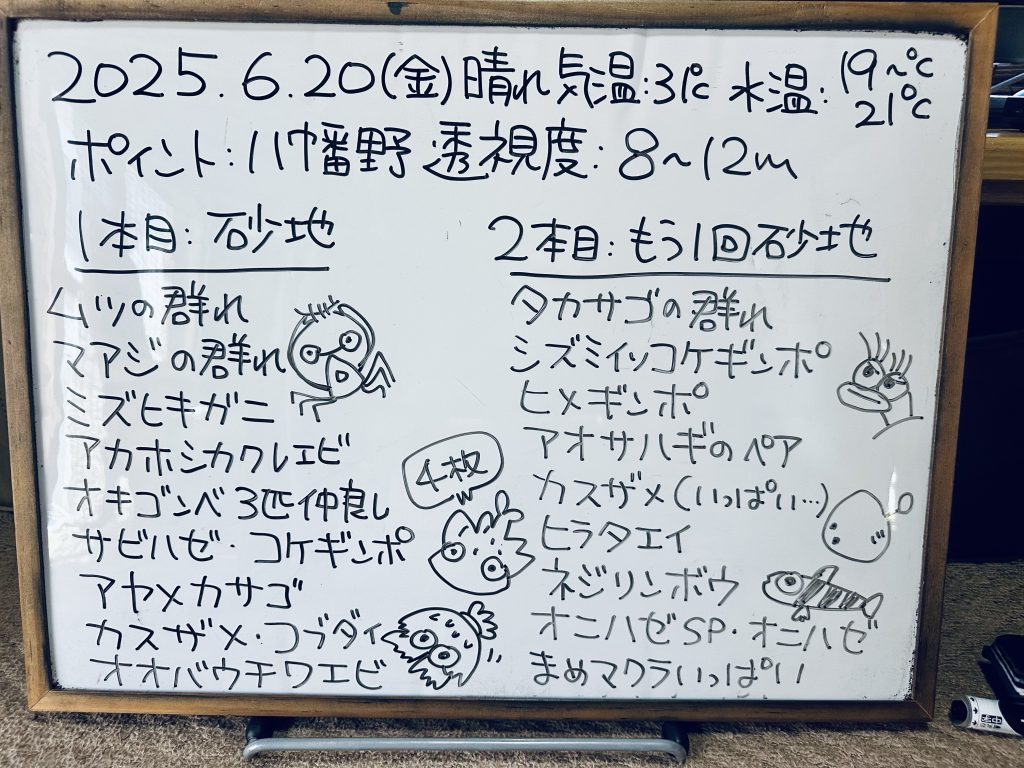 2025.6.20(金)晴れ 気温:31℃ 水温:19~℃ 21℃
ポイント:八幡野 透視度:8~12m
1本目:砂地
ムツの群れ
マアジの群れ
ミズヒキガニ
アカホシカクレエビ
オキゴンベ3匹仲良し
サビハゼ・コケギンポ
アヤメカサゴ
カスザメ・コブダイ
オオバウチワエビ
4枚
2本目:もう1回砂地
タカサゴの群れ
シズミイソコケギンポ
ヒメギンポ
アオサハギのペア
カスザメ(いっぱい…)
ヒラタエイ
ネジリンボウ
オニハゼSP・オニハゼ
まめマクラいっぱい